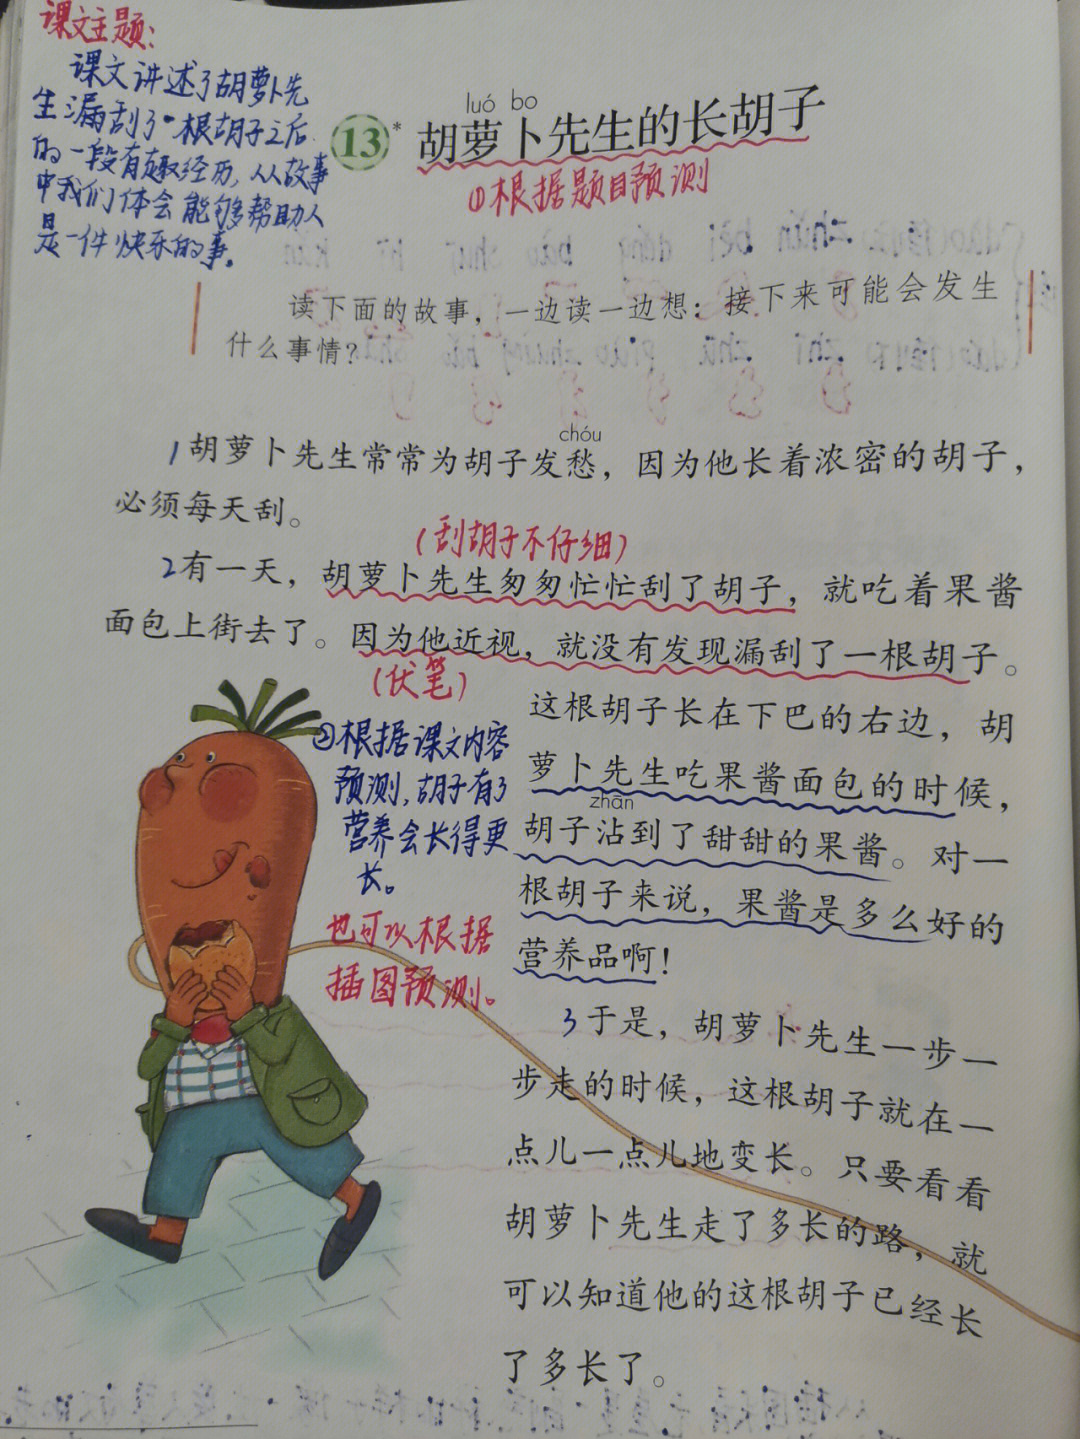 课文主题：
课文讲述了胡萝卜先
生漏刮了一根胡子之后
的一段有趣经历，从故事
中我们体会能够帮助人
是一件快乐的事。
luó bo
13* 胡萝卜先生的长胡子
①根据题目预测
读下面的故事，一边读一边想：接下来可能会发生
什么事情？
chóu
1胡萝卜先生常常为胡子发愁，因为他长着浓密的胡子，
必须每天刮。
（刮胡子不仔细）
2有一天，胡萝卜先生匆匆忙忙刮了胡子，就吃着果酱
面包上街去了。因为他近视，就没有发现漏刮了一根胡子。
（伏笔）
这根胡子长在下巴的右边，胡
萝卜先生吃果酱面包的时候，
zhān
胡子沾到了甜甜的果酱。对一
根胡子来说，果酱是多么好的
营养品啊！
②根据课文内容
预测，胡子有了
营养会长得更
长。
也可以根据
插图预测。
3于是，胡萝卜先生一步一
步走的时候，这根胡子就在一
点儿一点儿地变长。只要看看
胡萝卜先生走了多长的路，就
可以知道他的这根胡子已经长
了多长了。